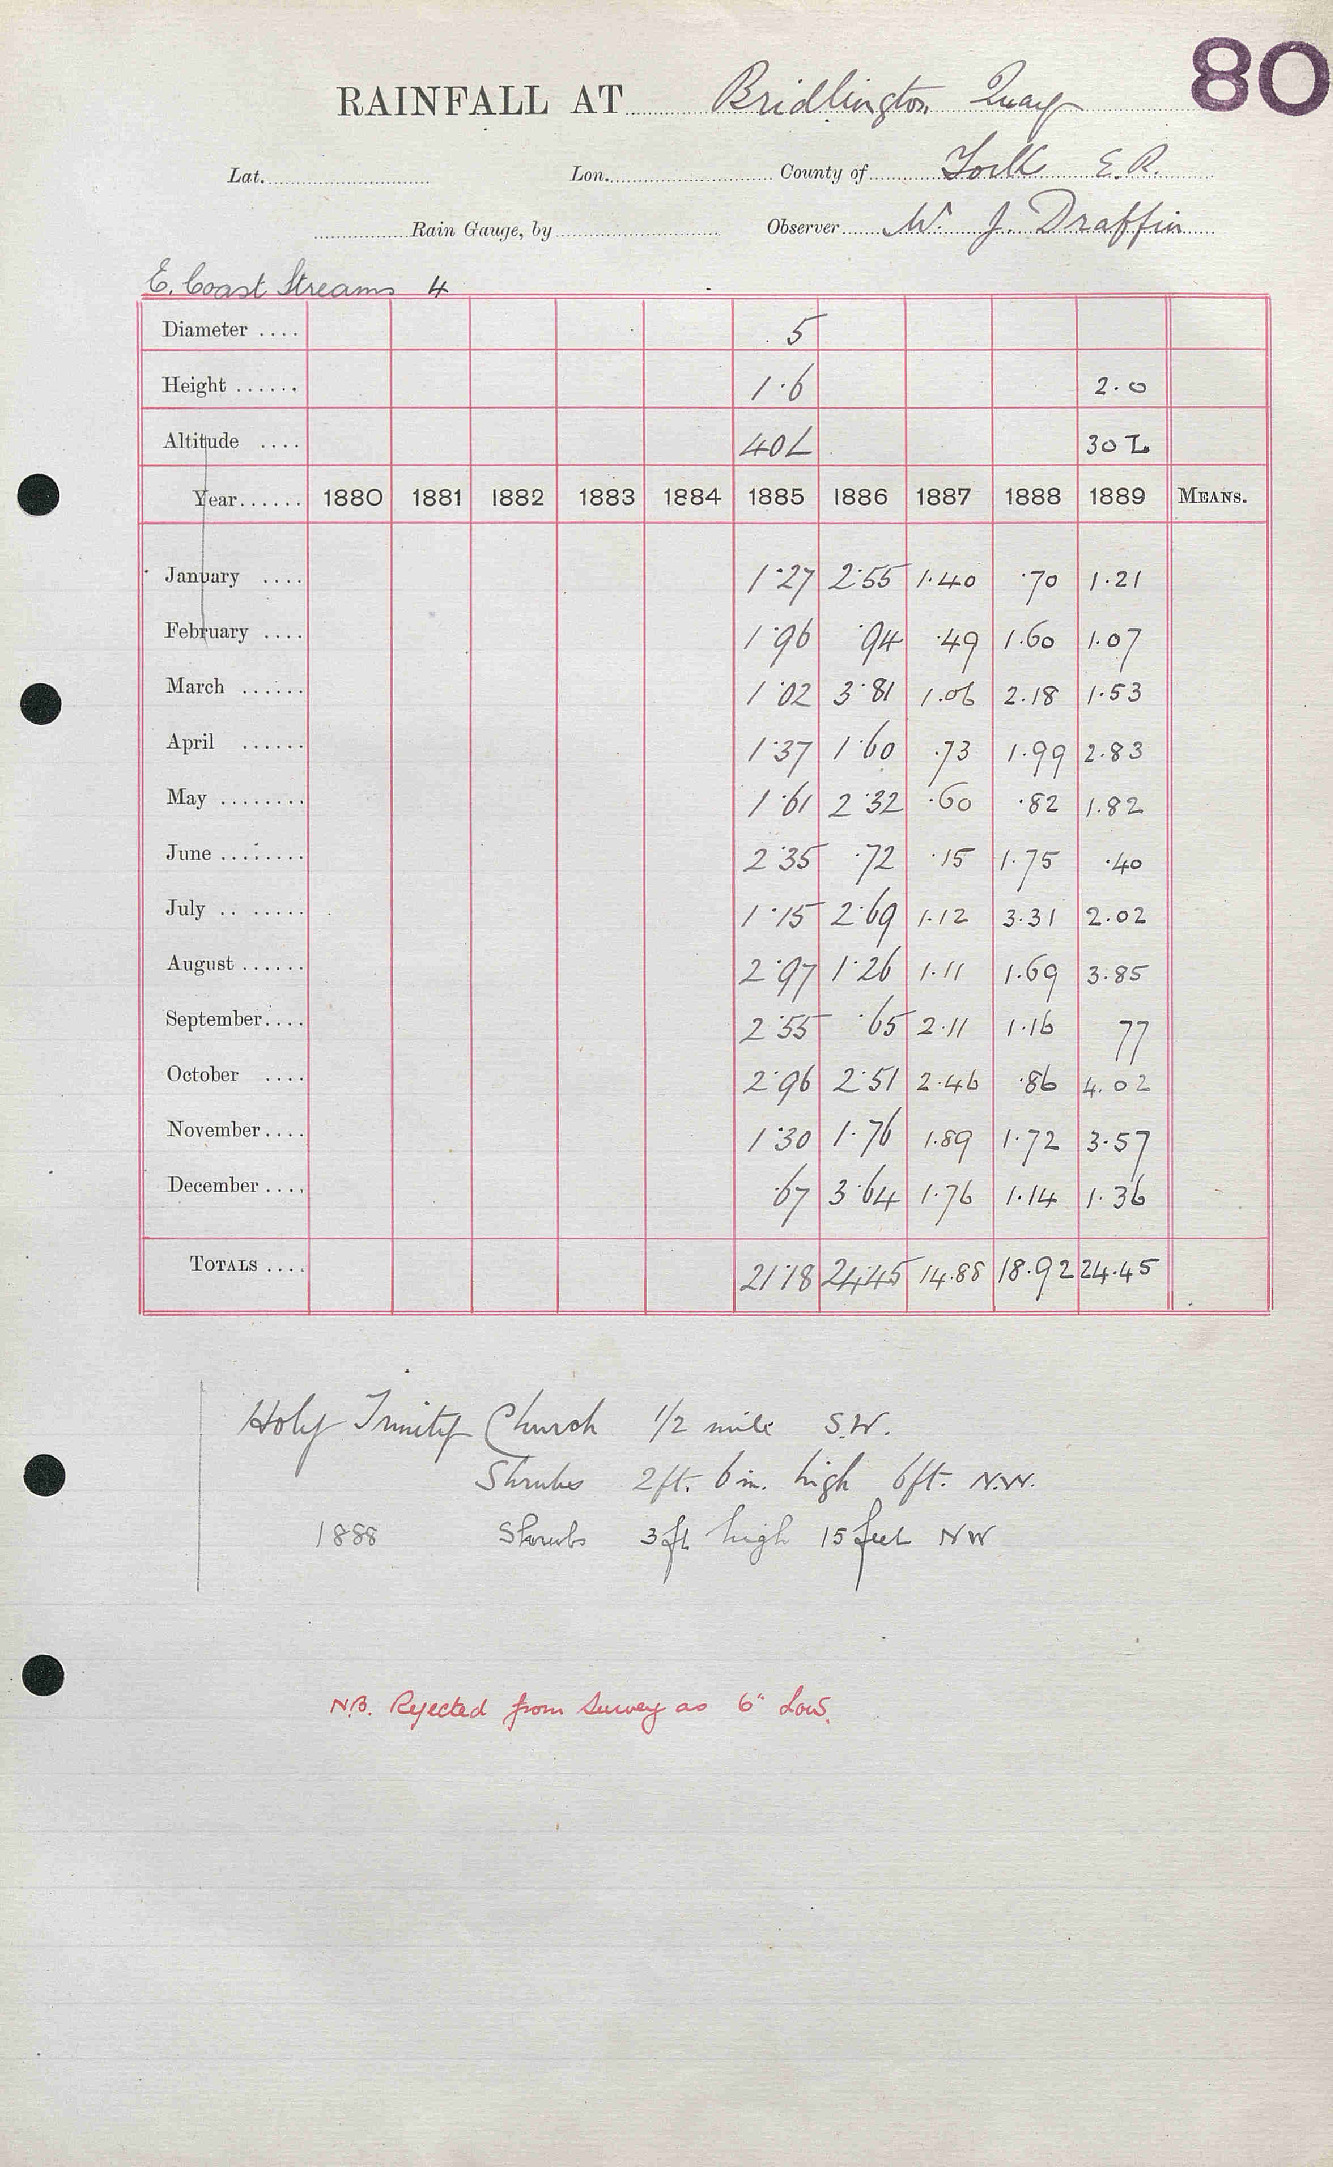 80
RAINFALL AT Bridlington Quay
Lat. Lon. County of York E.R.
Rain Gauge, by Observer W. J. Draffin
E. Coast Streams 4
Diameter .... 5
Height ...... 1·6 2.0
Altitude .... 40L 30L
Year...... 1880 1881 1882 1883 1884 1885 1886 1887 1888 1889 MEANS.
January .... 1·27 2·55 1.40 ·70 1.21
February .... 1·96 ·94 ·49 1.60 1.07
March ...... 1·02 3·81 1.06 2.18 1.53
April ...... 1·37 1·60 .73 1.99 2.83
May ........ 1·61 2·32 .60 ·82 1.82
June ........ 2·35 ·72 ·15 1.75 ·40
July .. ..... 1·15 2·69 1.12 3.31 2.02
August ...... 2·97 1·26 1.11 1.69 3.85
September.... 2·55 ·65 2.11 1.16 77
October .... 2·96 2·51 2.46 ·86 4.02
November.... 1·30 1·76 1.89 1.72 3.57
December .... ·67 3·64 1.76 1.14 1.36
TOTALS .... 21·18 24·45 14.88 18.92 24.45
Holy Trinity Church 1/2 mile S.W.
Shrubs 2ft. 6in. high 6ft. N.W.
1888 Shrubs 3ft high 15 feet NW
N.B. Rejected from Survey as 6" Low.